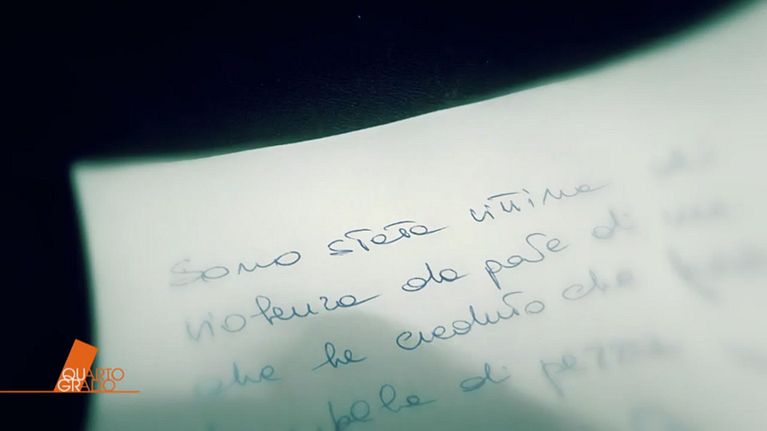 Sono stata vittima di
violenza da parte di una
che ha creduto che
di
QUARTO
GRADO